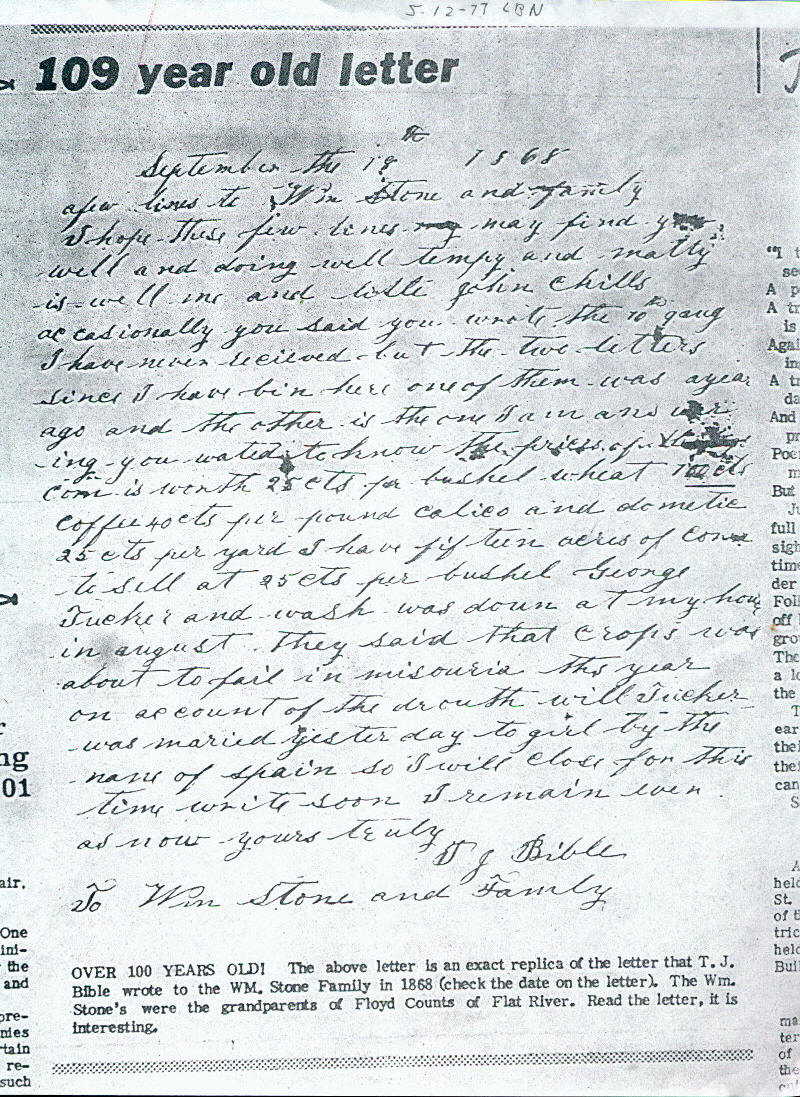 5-12-77 LBN
109 year old letter
September the 18th 1868
afew lines to Wm Stone and family
I hope these few lines may find you
well and doing well tempy and matty
is well me and little John Chills
accasionally you said you wrote the 10th gang
I have never recieved but the two letters
since I have bin here one of them was ayear
ago and the other is the one I am answer
ing you wated to know the prices of
Corn is worth 25cts per bushel wheat
Coffee 40cts per pound calico and dometic
25cts per yard I have fifteen acres of Corn
to sell at 25cts per bushel George
Tucker and wash was down at my hous
in august they said that crops was
about to fail in misouria this year
on account of the drouth will Tucker
was maried yester day to girl by the
name of spain so I will close for this
time write soon I remain ever
as now yours truly
T J Bible
To Wm Stone and Family
OVER 100 YEARS OLD! The above letter is an exact replica of the letter that T. J.
Bible wrote to the WM. Stone Family in 1868 (check the date on the letter). The Wm.
Stone's were the grandparents of Floyd Counts of Flat River. Read the letter, it is
interesting.
ng
01
air.
One
ini-
the
and
pre-
nies
tain
re-
such
"I t
se
A p
A tr
is
Agai
in
A tr
da
And
pr
Poe
m
But
Ju
full
sigh
time
der
Foll
off
gro
The
a lo
the
T
ear
thei
thei
can
S
A
held
St.
of th
tric
held
Buil
ma
ter
of
the